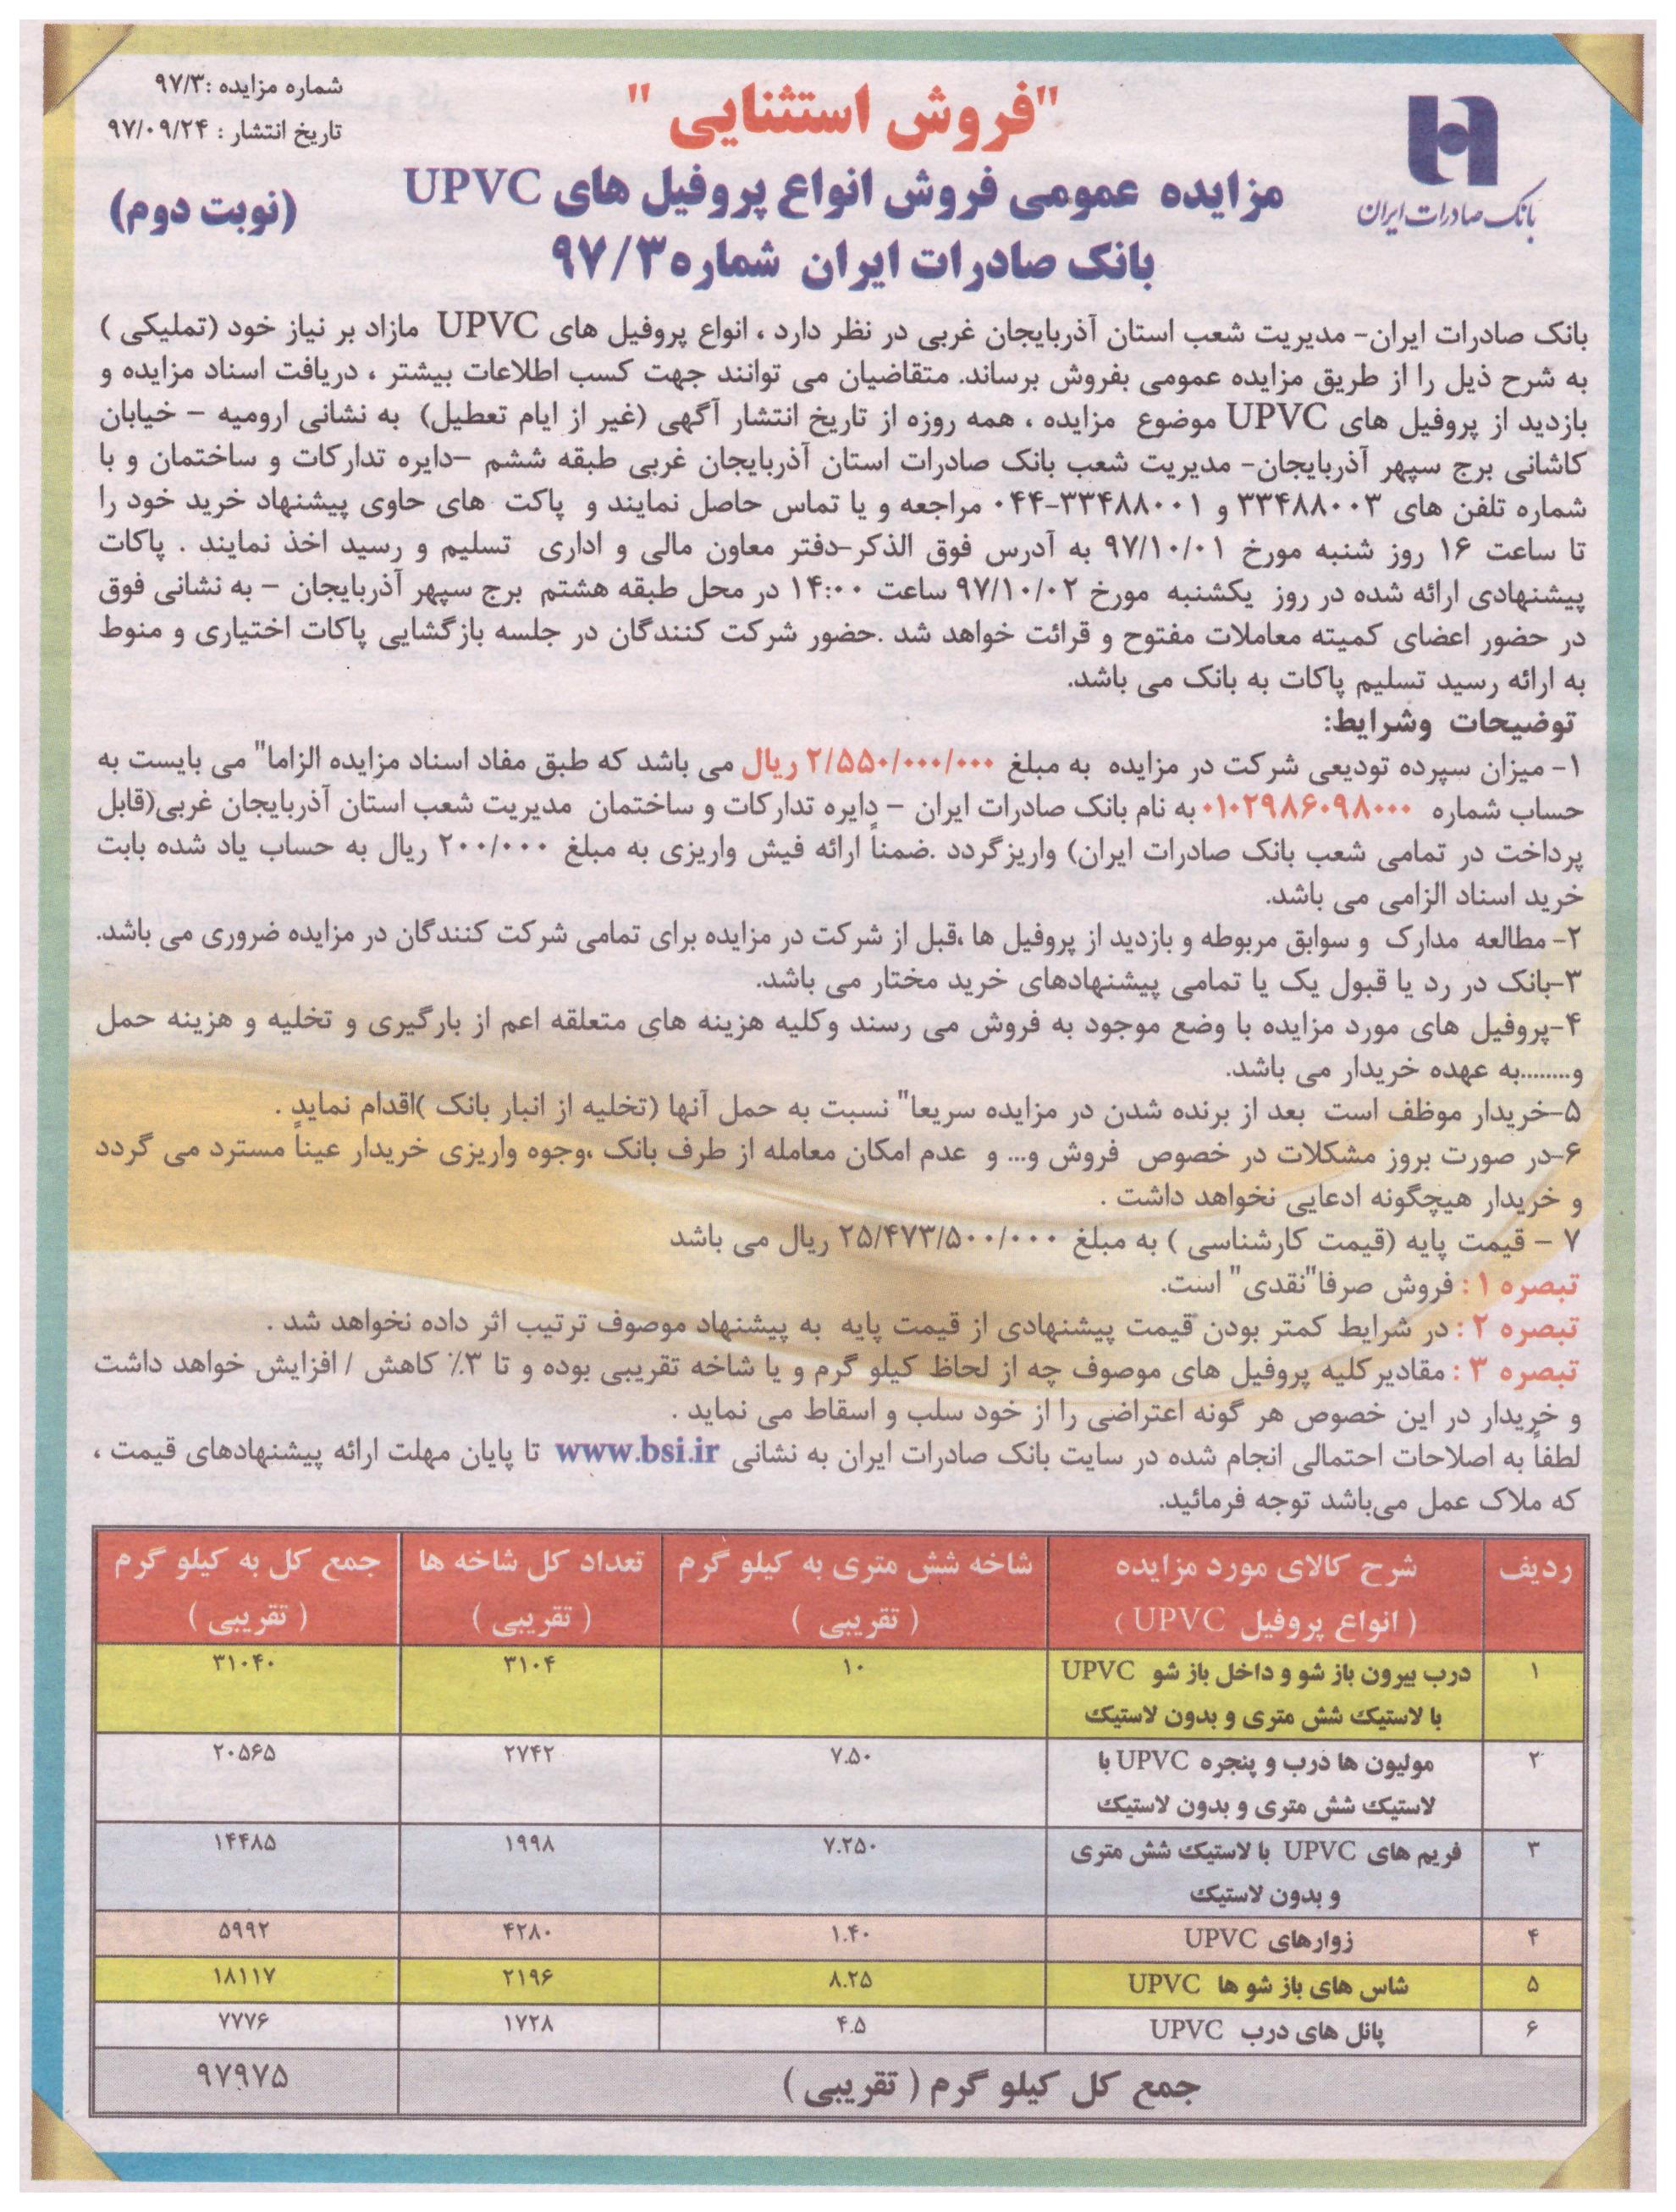 شماره مزایده :۹۷/۳
تاریخ انتشار : ۹۷/۰۹/۲۴
"فروش استثنایی"
مزایده عمومی فروش انواع پروفیل های UPVC
(نوبت دوم)
بانک صادرات ایران شماره ۹۷/۳
بانک صادرات ایران
بانک صادرات ایران- مدیریت شعب استان آذربایجان غربی در نظر دارد ، انواع پروفیل های UPVC مازاد بر نیاز خود (تملیکی )
به شرح ذیل را از طریق مزایده عمومی بفروش برساند. متقاضیان می توانند جهت کسب اطلاعات بیشتر ، دریافت اسناد مزایده و
بازدید از پروفیل های UPVC موضوع مزایده ، همه روزه از تاریخ انتشار آگهی (غیر از ایام تعطیل) به نشانی ارومیه – خیابان
کاشانی برج سپهر آذربایجان- مدیریت شعب بانک صادرات استان آذربایجان غربی طبقه ششم –دایره تدارکات و ساختمان و با
شماره تلفن های ۳۳۴۸۸۰۰۳ و ۳۳۴۸۸۰۰۱-۰۴۴ مراجعه و یا تماس حاصل نمایند و پاکت های حاوی پیشنهاد خرید خود را
تا ساعت ۱۶ روز شنبه مورخ ۹۷/۱۰/۰۱ به آدرس فوق الذکر-دفتر معاون مالی و اداری تسلیم و رسید اخذ نمایند . پاکات
پیشنهادی ارائه شده در روز یکشنبه مورخ ۹۷/۱۰/۰۲ ساعت ۱۴:۰۰ در محل طبقه هشتم برج سپهر آذربایجان – به نشانی فوق
در حضور اعضای کمیته معاملات مفتوح و قرائت خواهد شد .حضور شرکت کنندگان در جلسه بازگشایی پاکات اختیاری و منوط
به ارائه رسید تسلیم پاکات به بانک می باشد.
توضیحات وشرایط:
۱- میزان سپرده تودیعی شرکت در مزایده به مبلغ ۲/۵۵۰/۰۰۰/۰۰۰ ریال می باشد که طبق مفاد اسناد مزایده الزاما" می بایست به
حساب شماره ۰۱۰۲۹۸۶۰۹۸۰۰۰ به نام بانک صادرات ایران – دایره تدارکات و ساختمان مدیریت شعب استان آذربایجان غربی(قابل
پرداخت در تمامی شعب بانک صادرات ایران) واریزگردد .ضمناً ارائه فیش واریزی به مبلغ ۲۰۰/۰۰۰ ریال به حساب یاد شده بابت
خرید اسناد الزامی می باشد.
۲- مطالعه مدارک و سوابق مربوطه و بازدید از پروفیل ها ،قبل از شرکت در مزایده برای تمامی شرکت کنندگان در مزایده ضروری می باشد.
۳-بانک در رد یا قبول یک یا تمامی پیشنهادهای خرید مختار می باشد.
۴-پروفیل های مورد مزایده با وضع موجود به فروش می رسند وکلیه هزینه های متعلقه اعم از بارگیری و تخلیه و هزینه حمل
و........به عهده خریدار می باشد.
۵-خریدار موظف است بعد از برنده شدن در مزایده سریعا" نسبت به حمل آنها (تخلیه از انبار بانک )اقدام نماید .
۶-در صورت بروز مشکلات در خصوص فروش و... و عدم امکان معامله از طرف بانک ،وجوه واریزی خریدار عیناً مسترد می گردد
و خریدار هیچگونه ادعایی نخواهد داشت .
۷ – قیمت پایه (قیمت کارشناسی ) به مبلغ ۲۵/۴۷۳/۵۰۰/۰۰۰ ریال می باشد
تبصره ۱ : فروش صرفا"نقدی" است.
تبصره ۲ : در شرایط کمتر بودن قیمت پیشنهادی از قیمت پایه به پیشنهاد موصوف ترتیب اثر داده نخواهد شد .
تبصره ۳ : مقادیرکلیه پروفیل های موصوف چه از لحاظ کیلو گرم و یا شاخه تقریبی بوده و تا ۳٪ کاهش / افزایش خواهد داشت
و خریدار در این خصوص هر گونه اعتراضی را از خود سلب و اسقاط می نماید .
لطفاً به اصلاحات احتمالی انجام شده در سایت بانک صادرات ایران به نشانی www.bsi.ir تا پایان مهلت ارائه پیشنهادهای قیمت ،
که ملاک عمل می‌باشد توجه فرمائید.
ردیف شرح کالای مورد مزایده شاخه شش متری به کیلو گرم تعداد کل شاخه ها جمع کل به کیلو گرم
( انواع پروفیل UPVC ) ( تقریبی ) ( تقریبی ) ( تقریبی )
۱ درب بیرون باز شو و داخل باز شو UPVC ۱۰ ۳۱۰۴ ۳۱۰۴۰
با لاستیک شش متری و بدون لاستیک
۲ مولیون ها درب و پنجره UPVC با ۷.۵۰ ۲۷۴۲ ۲۰۵۶۵
لاستیک شش متری و بدون لاستیک
۳ فریم های UPVC با لاستیک شش متری ۷.۲۵۰ ۱۹۹۸ ۱۴۴۸۵
و بدون لاستیک
۴ زوارهای UPVC ۱.۴۰ ۴۲۸۰ ۵۹۹۲
۵ شاس های باز شو ها UPVC ۸.۲۵ ۲۱۹۶ ۱۸۱۱۷
۶ پانل های درب UPVC ۴.۵ ۱۷۲۸ ۷۷۷۶
جمع کل کیلو گرم ( تقریبی ) ۹۷۹۷۵